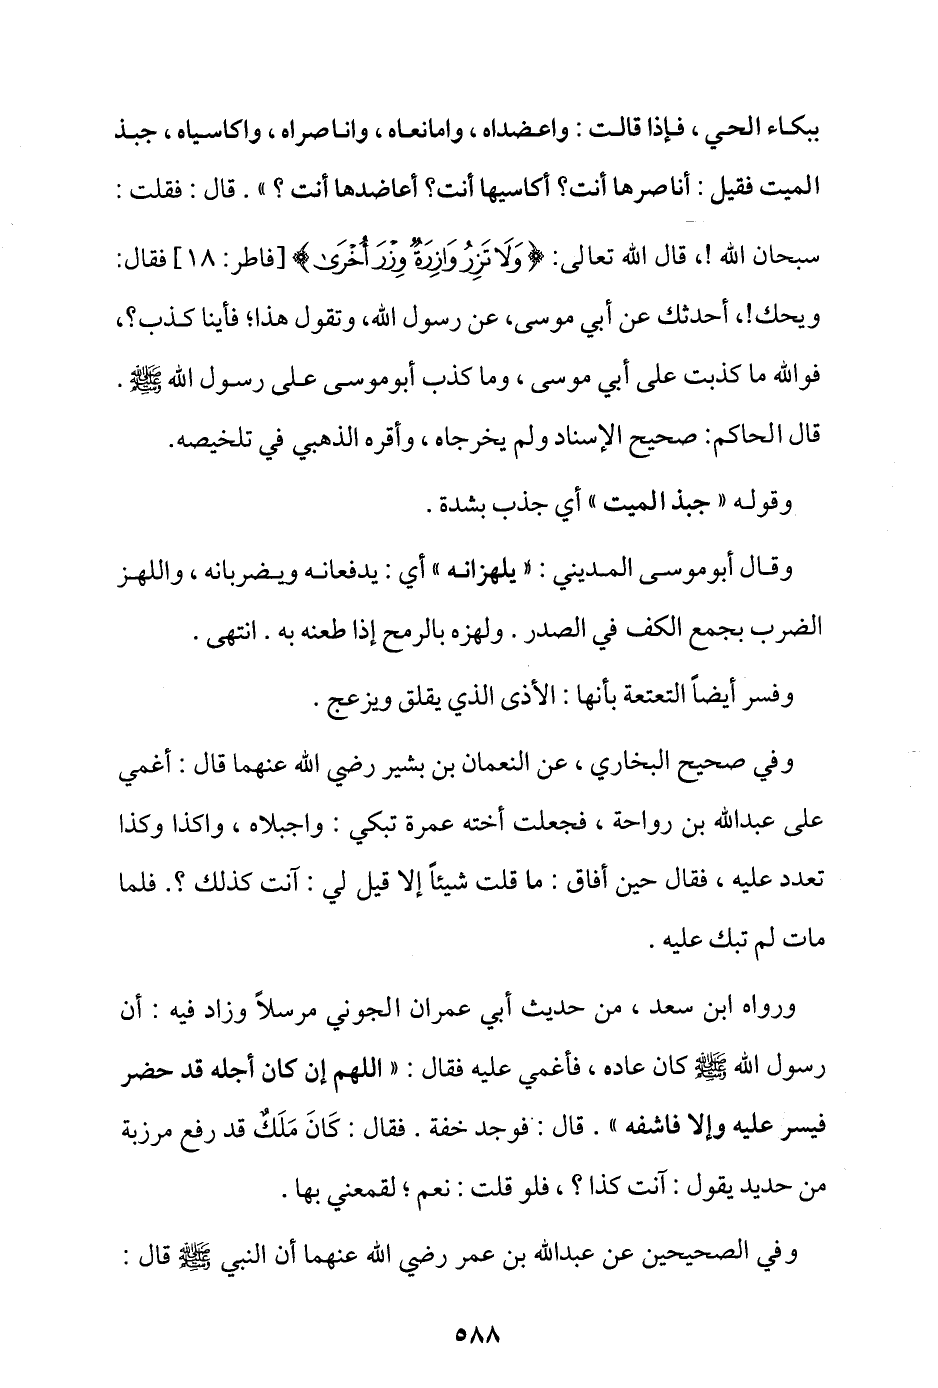 ببكاء الحي ، فإذا قالت : واعضداه ، وامانعاه ، واناصراه ، واكاسياه ، جبذ
الميت فقيل : أناصرها أنت؟ أكاسيها أنت؟ أعاضدها أنت ؟ » . قال : فقلت :
سبحان الله !، قال الله تعالى: ﴿وَلَا تَزِرُ وَازِرَةٌ وِزْرَ أُخْرَىٰ﴾ [فاطر: ١٨] فقال:
ويحك!، أحدثك عن أبي موسى، عن رسول الله، وتقول هذا؛ فأينا كذب؟،
فوالله ما كذبت على أبي موسى ، وما كذب أبوموسى على رسول الله ﷺ .
قال الحاكم: صحيح الإسناد ولم يخرجاه ، وأقره الذهبي في تلخيصه.
وقوله « جبذ الميت » أي جذب بشدة .
وقال أبوموسى المديني : « يلهزانه » أي : يدفعانه ويضربانه ، واللهز
الضرب بجمع الكف في الصدر . ولهزه بالرمح إذا طعنه به . انتهى .
وفسر أيضاً التعتعة بأنها : الأذى الذي يقلق ويزعج .
وفي صحيح البخاري ، عن النعمان بن بشير رضي الله عنهما قال : أغمي
على عبدالله بن رواحة ، فجعلت أخته عمرة تبكي : واجبلاه ، واكذا وكذا
تعدد عليه ، فقال حين أفاق : ما قلت شيئاً إلا قيل لي : آنت كذلك ؟. فلما
مات لم تبك عليه .
ورواه ابن سعد ، من حديث أبي عمران الجوني مرسلاً وزاد فيه : أن
رسول الله ﷺ كان عاده ، فأغمي عليه فقال : « اللهم إن كان أجله قد حضر
فيسر عليه وإلا فاشفه » . قال : فوجد خفة . فقال : كَانَ مَلَكٌ قد رفع مرزبة
من حديد يقول : آنت كذا ؟ ، فلو قلت : نعم ؛ لقمعني بها .
وفي الصحيحين عن عبدالله بن عمر رضي الله عنهما أن النبي ﷺ قال :
٥٨٨